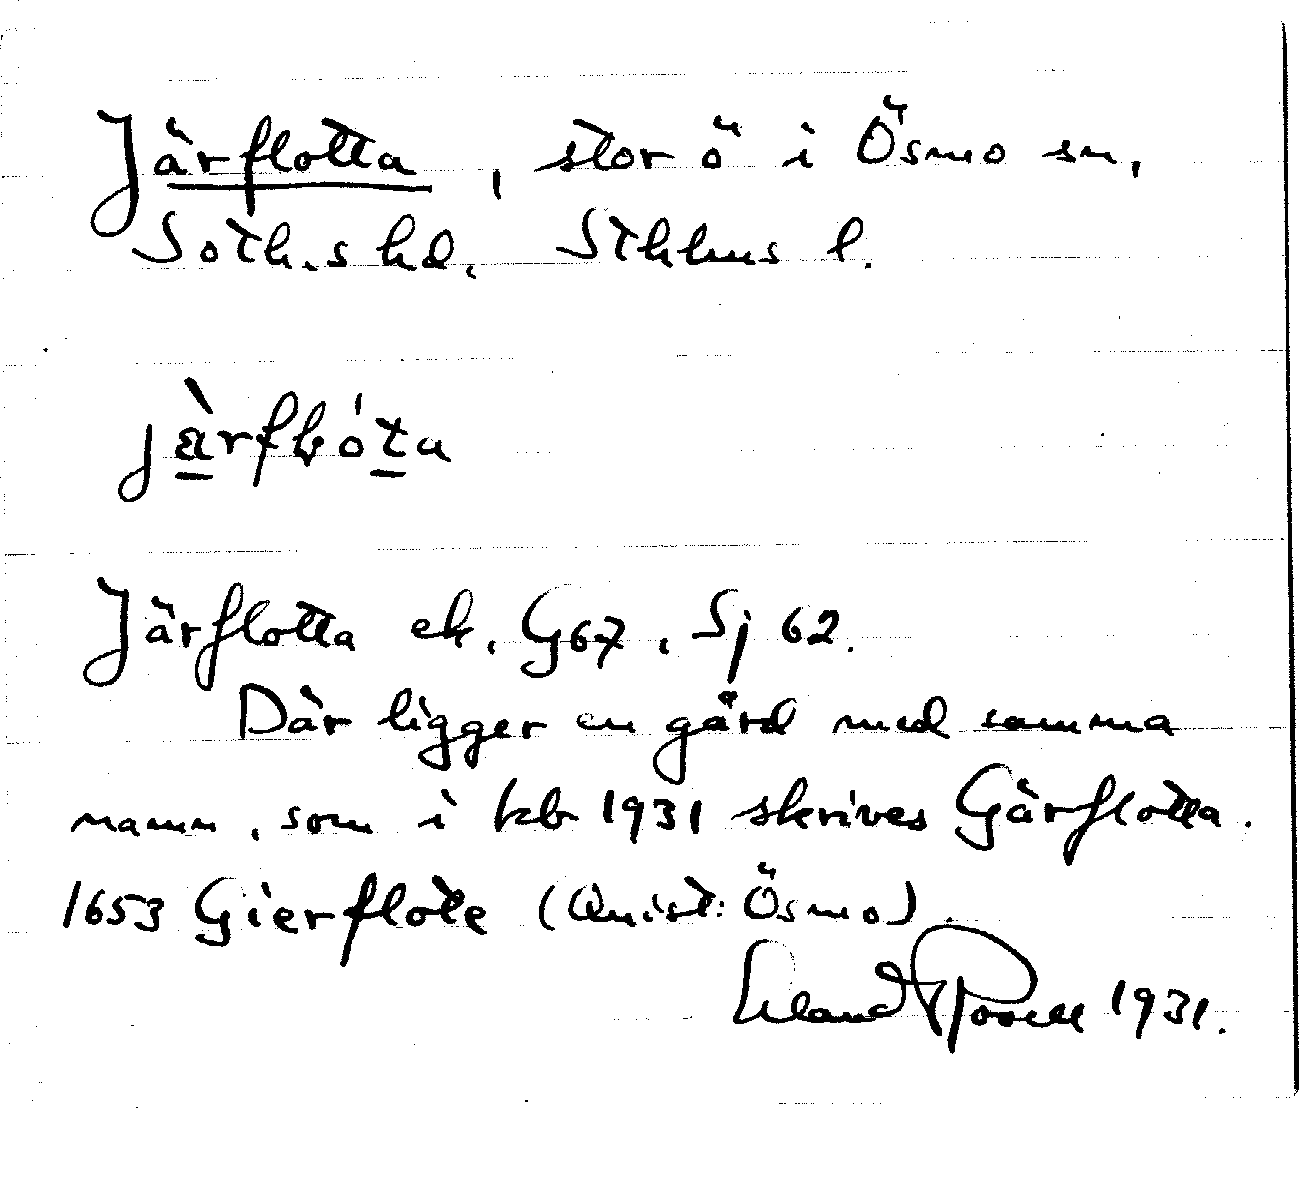 Järflotta, stor ö i Ösmo sn,
Soth.s hd. Sthlms l.
Järflotta ek. G67, Sj 62.
Där ligger en gård med samma
namn, som i kb 1931 skrives Gärflotta.
1653 Gierflote (Qvist: Ösmo).
Erland Rosell 1931.